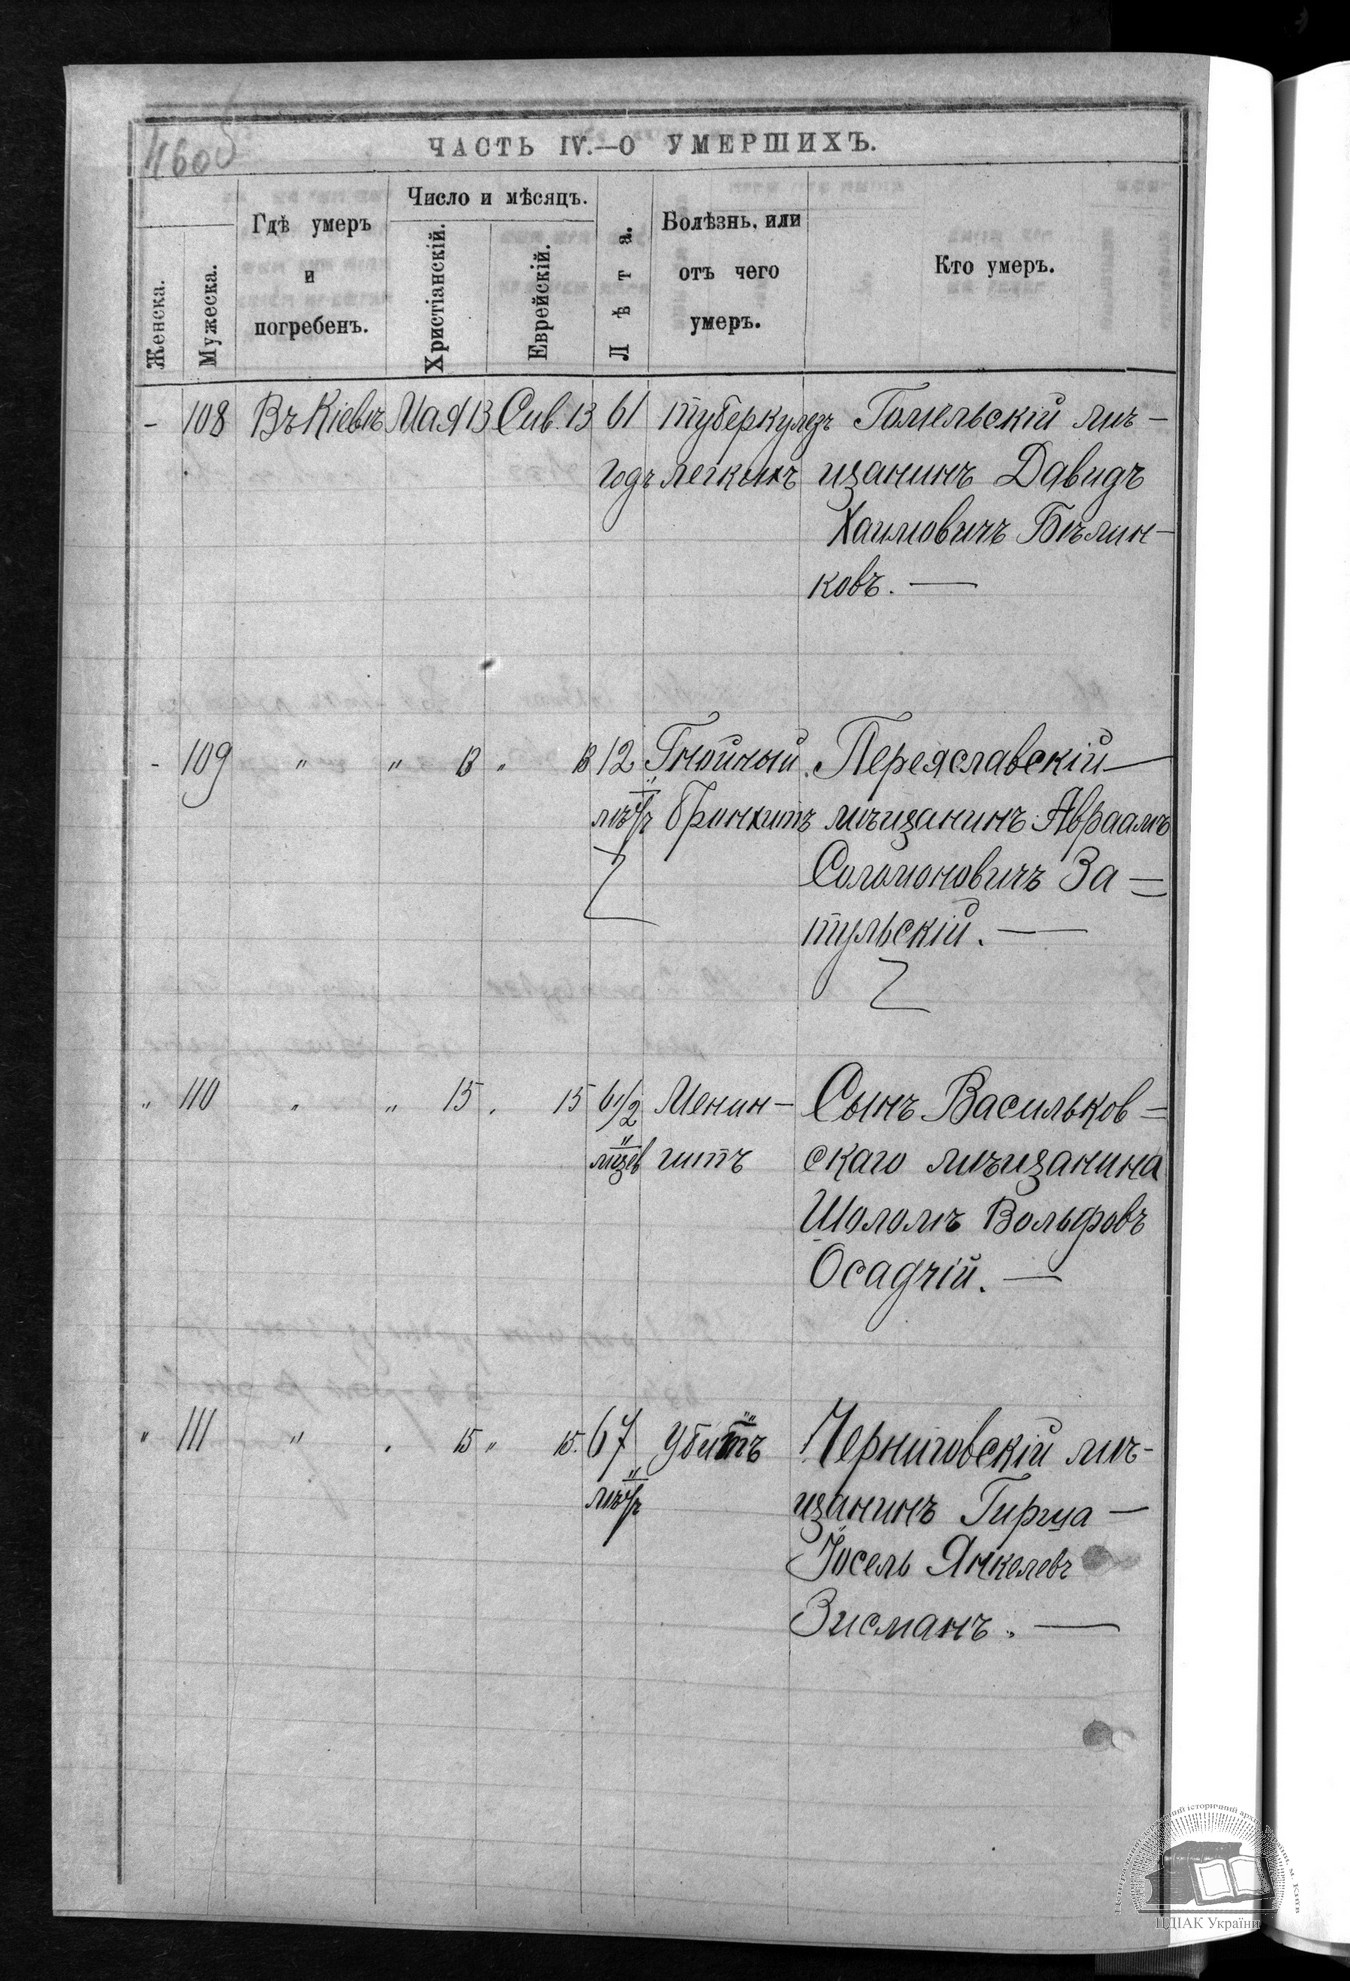 460 б
ЧАСТЬ IV.—О УМЕРШИХЪ.
Женска.
Мужеска.
Гдѣ умеръ
и
погребенъ.
Число и мѣсяцъ.
Христіанскій.
Еврейскій.
Лѣта.
Болѣзнь, или
отъ чего
умеръ.
Кто умеръ.
- 108 Въ Кіевѣ Мая 13 Сив. 13 61 туберкулезъ Гомельскій мѣ-
годъ легкихъ щанинъ Давидъ
Хаимовичъ Бѣлин-
ковъ. —
- 109 " " 13 " 13 12 Гнойный Переяславскій —
бронхитъ мѣщанинъ Авраамъ
Соломоновичъ За=
тульскій. —
" 110 " " 15 " 15 6½ Менин- Сынъ Васильков=
мцев гитъ скаго мѣщанина
Шоломъ Вольфовъ
Осадчій. —
" 111 " " 15 " 15. 67 Убитъ Черниговскій мѣ-
щанинъ Гирша —
Іосель Янкелевъ
Зисманъ. —
ЦДІАК України